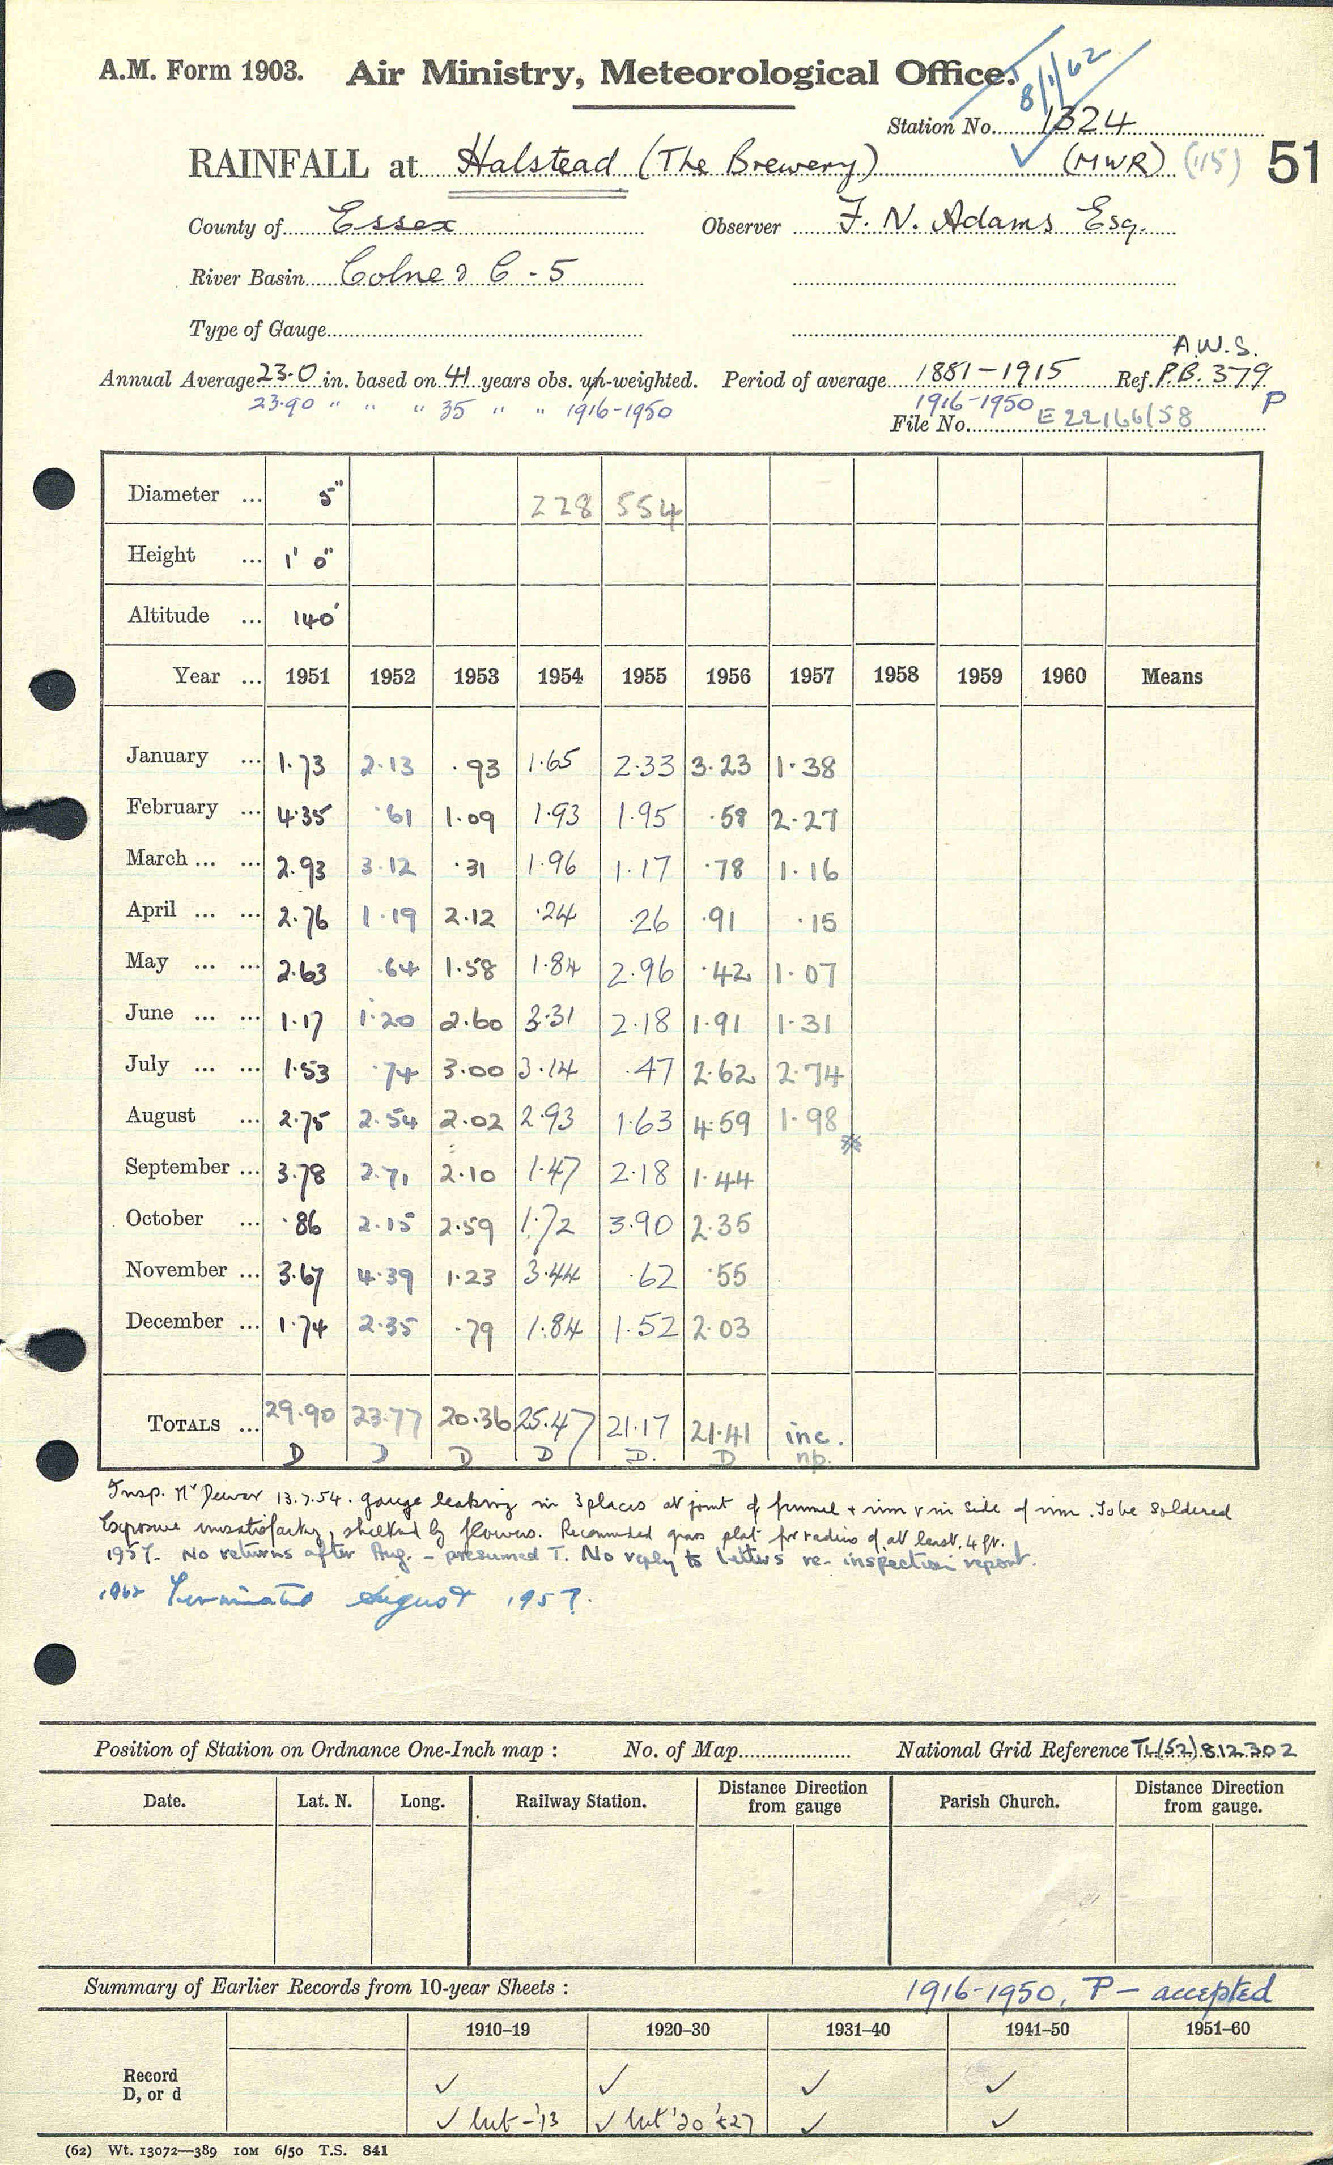 A.M. Form 1903. Air Ministry, Meteorological Office.
8/1/62
Station No. 1324
RAINFALL at Halstead (The Brewery) (MWR) (115) 51
County of Essex Observer F. N. Adams Esq.
River Basin Colne & C - 5
Type of Gauge
A.W.S.
Annual Average 23.0 in. based on 41 years obs. un-weighted. Period of average 1881-1915 Ref. P.B. 379
23.90 " " " 35 " " 1916-1950 1916-1950 P
File No. E 22166/58
Diameter ... 5" 228 554
Height ... 1' 0"
Altitude ... 140'
Year ... 1951 1952 1953 1954 1955 1956 1957 1958 1959 1960 Means
January ... 1.73 2.13 .93 1.65 2.33 3.23 1.38
February ... 4.35 .61 1.09 1.93 1.95 .58 2.27
March ... ... 2.93 3.12 .31 1.96 1.17 .78 1.16
April ... ... 2.76 1.19 2.12 .24 .26 .91 .15
May ... ... 2.63 .64 1.58 1.84 2.96 .42 1.07
June ... ... 1.17 1.20 2.60 3.31 2.18 1.91 1.31
July ... ... 1.53 .74 3.00 3.14 .47 2.62 2.74
August ... 2.75 2.54 2.02 2.93 1.63 4.59 1.98 *
September ... 3.78 2.71 2.10 1.47 2.18 1.44
October ... .86 2.15 2.59 1.72 3.90 2.35
November ... 3.67 4.39 1.23 3.44 .62 .55
December ... 1.74 2.35 .79 1.84 1.52 2.03
TOTALS ... 29.90 23.77 20.36 25.47 21.17 21.41 inc.
D D D D D. D np.
Insp. Mr Dewar 13.7.54. gauge leaking in 3 places at joint of funnel + rim + in side of rim. To be soldered
Exposure unsatisfactory, sheltered by flowers. Recommended grass plat for radius of at least 4 ft.
1957. No returns after Aug. - presumed T. No reply to letters re- inspection report.
1962 Terminated August 1957.
Position of Station on Ordnance One-Inch map : No. of Map National Grid Reference TL(52) 812302
Date. Lat. N. Long. Railway Station. Distance Direction from gauge Parish Church. Distance Direction from gauge.
Summary of Earlier Records from 10-year Sheets : 1916-1950, P - accepted
1910–19 1920–30 1931–40 1941–50 1951–60
Record ✓ ✓ ✓ ✓
D, or d
✓ but -'13 ✓ but '20 '&27 ✓ ✓
(62) Wt. 13072—389 10M 6/50 T.S. 841